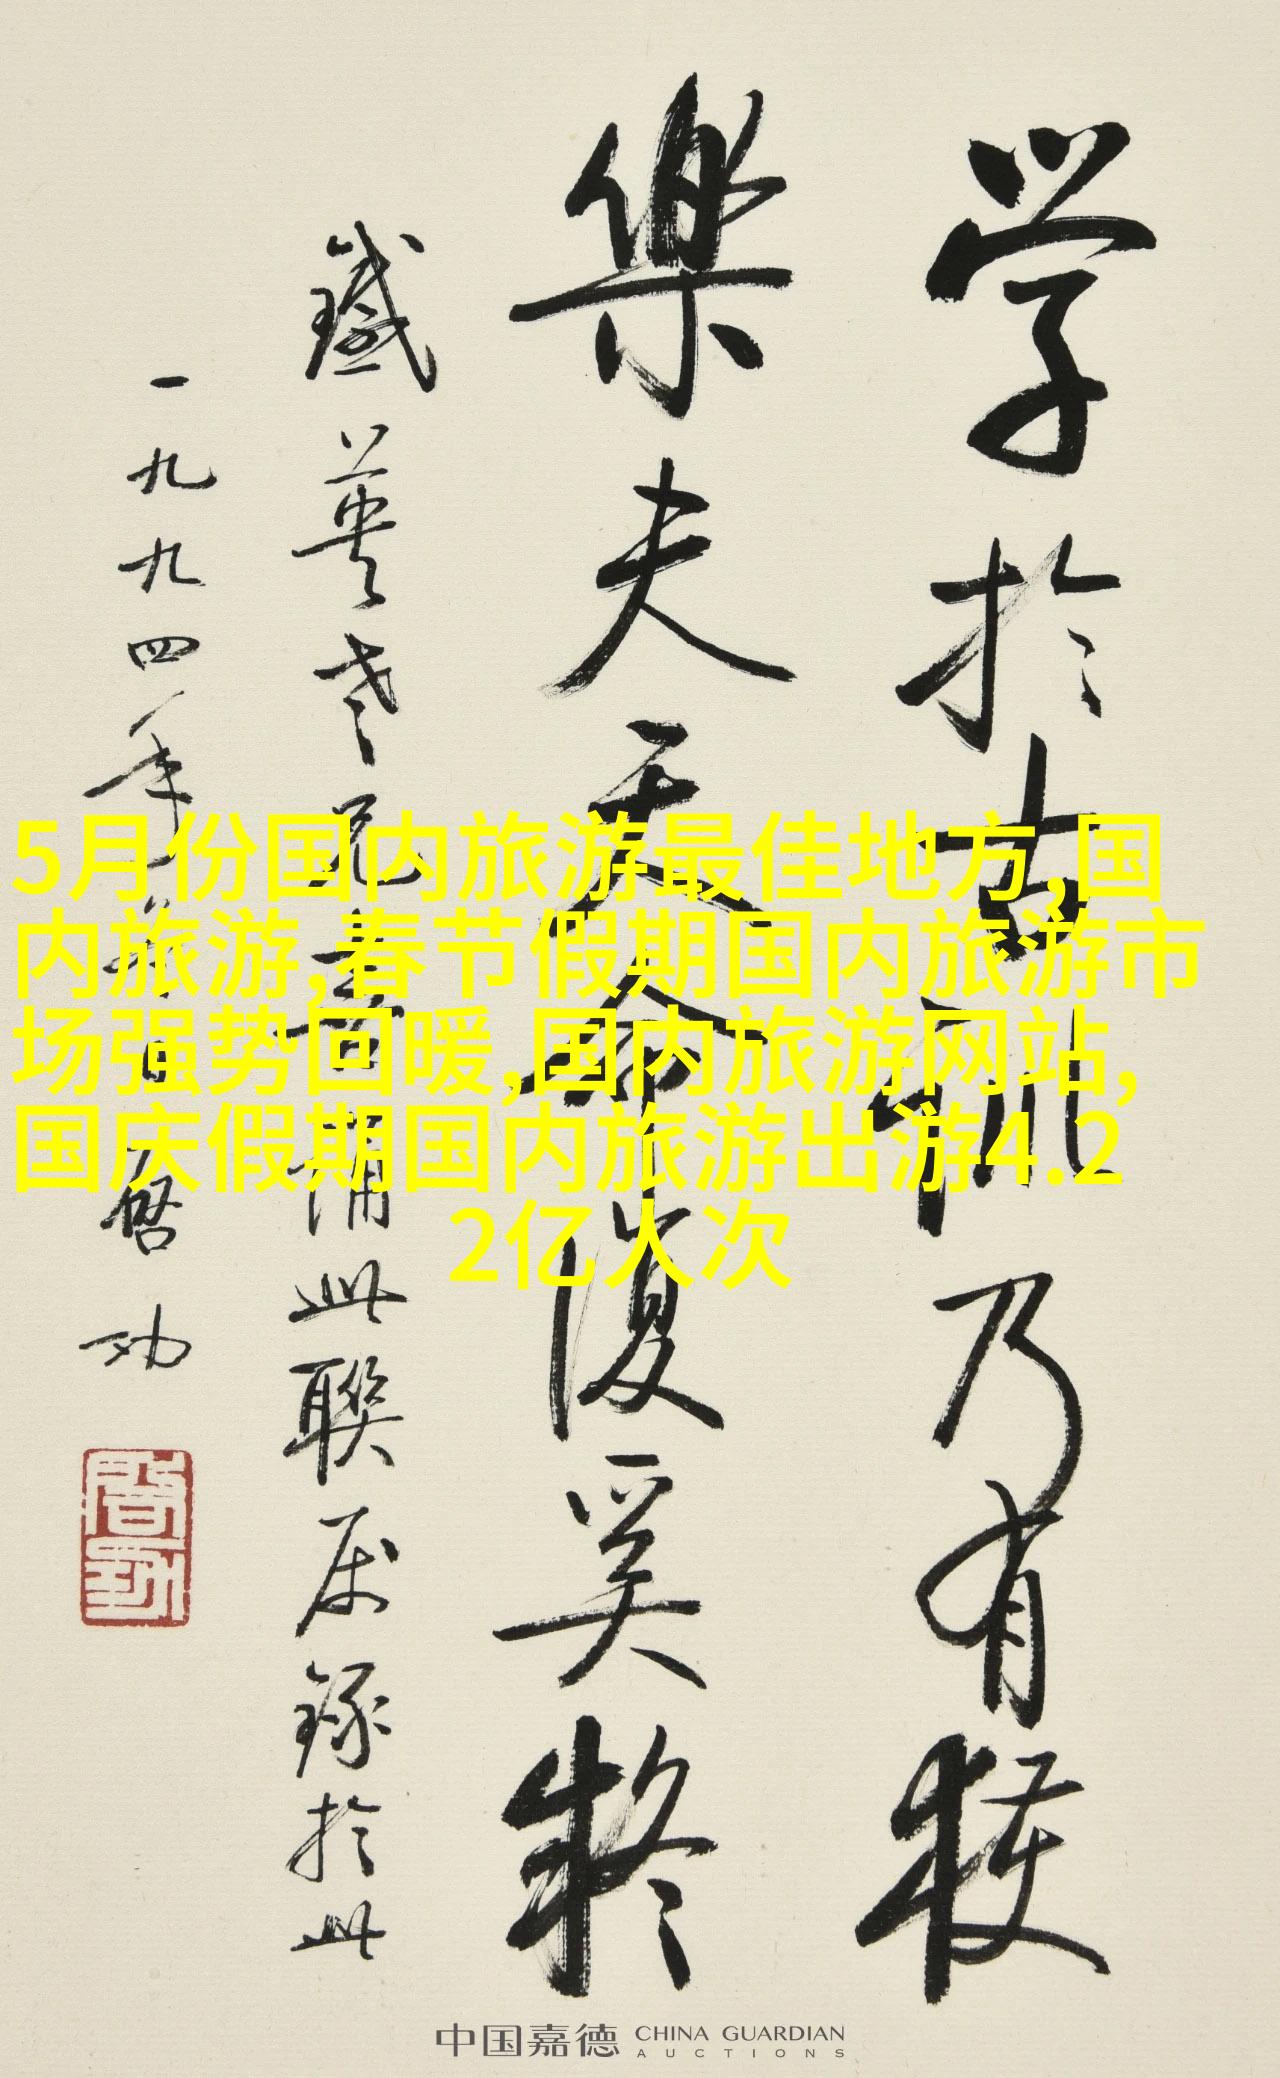 学於古训乃有获
樂夫天命復奚疑
鐵英老兄喜誦此聯屬録於此
一九九四年 启功
启功
5月份国内旅游最佳地方,国
内旅游,春节假期国内旅游市
场强势回暖,国内旅游网站,
国庆假期国内旅游出游4.2
2亿人次
中国嘉德 CHINA GUARDIAN
AUCTIONS